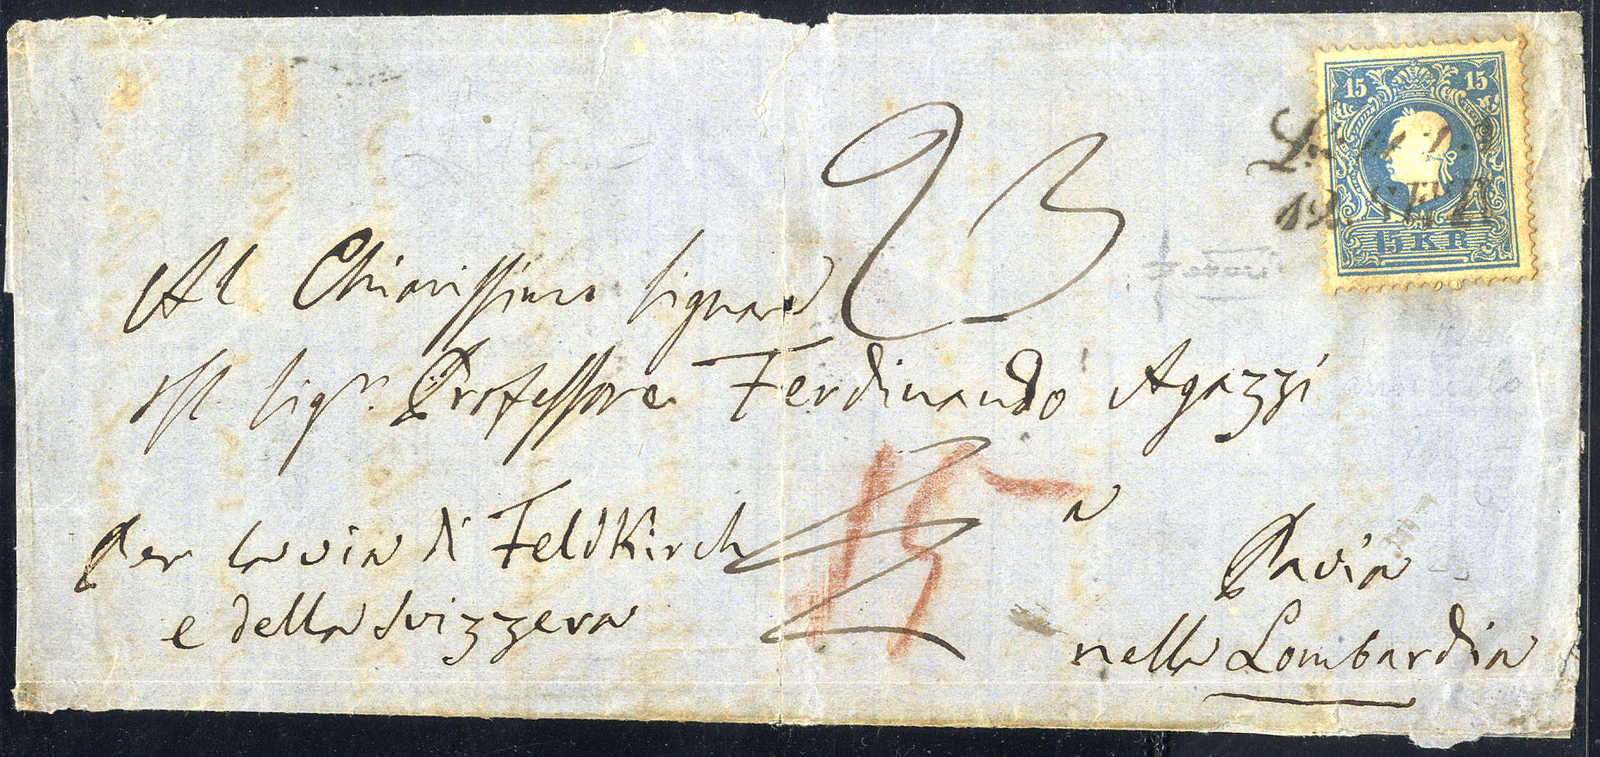 15 15
15 KR
12. SETT
23
Al Chiarissimo Signore
Sigr. Professore Ferdinando Agazzi
15
a
Per la via di Feldkirch
Pavia
e della Svizzera
nella Lombardia